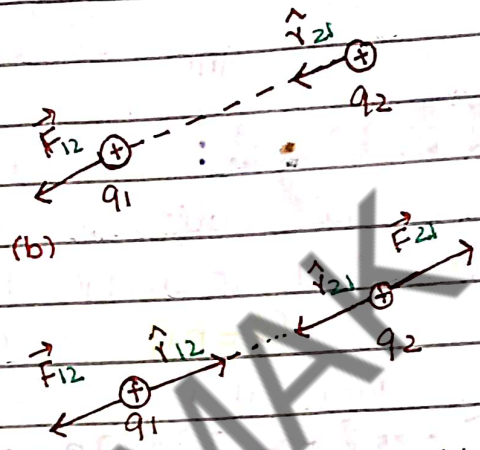 r̂21
q2
F⃗12
q1
(b)
F⃗21
r̂21
r̂12
q2
F⃗12
q1
MAK